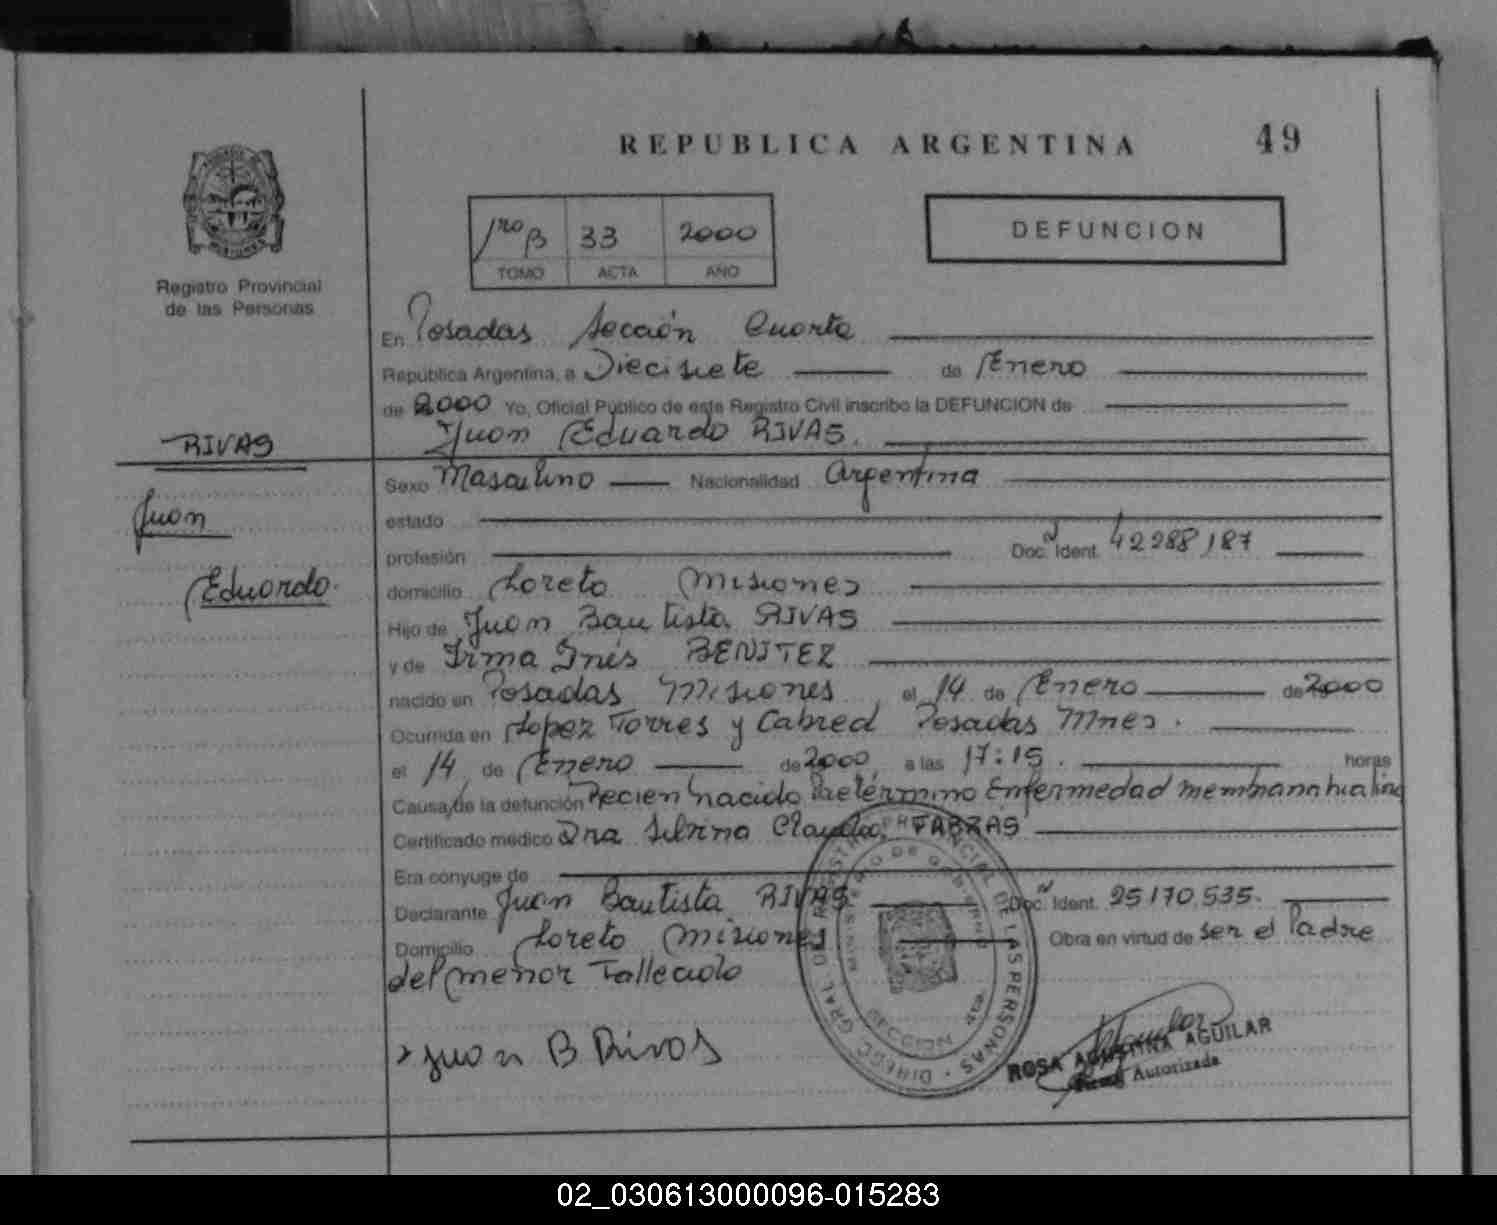 REPUBLICA ARGENTINA 49
1ro B 33 2000
TOMO ACTA AÑO
DEFUNCION
Registro Provincial
de las Personas
En Posadas Sección Cuarta
República Argentina, a Diecisiete de Enero
de 2000 Yo, Oficial Público de este Registro Civil inscribo la DEFUNCION de
Juan Eduardo RIVAS.
RIVAS
Juan
Eduardo.
Sexo Masculino Nacionalidad Argentina
estado
profesión Doc. Ident. 42288187
domicilio Loreto Misiones
Hijo de Juan Bautista RIVAS
y de Irma Inés BENITEZ
nacido en Posadas Misiones el 14 de Enero de 2000
Ocurrida en Lopez Torres y Cabred Posadas Mnes.
el 14 de Enero de 2000 a las 17:15. horas
Causa de la defunción Recien nacido Pretérmino Enfermedad membrana hialina
Certificado médico Dra Silvina Claudia
Era cónyuge de
Declarante Juan Bautista RIVAS Doc. Ident. 25170.535.
Domicilio Loreto Misiones Obra en virtud de ser el Padre
del menor Fallecido
Juan B Rivas
ROSA AGUSTINA AGUILAR
Firma Autorizada
02_030613000096-015283